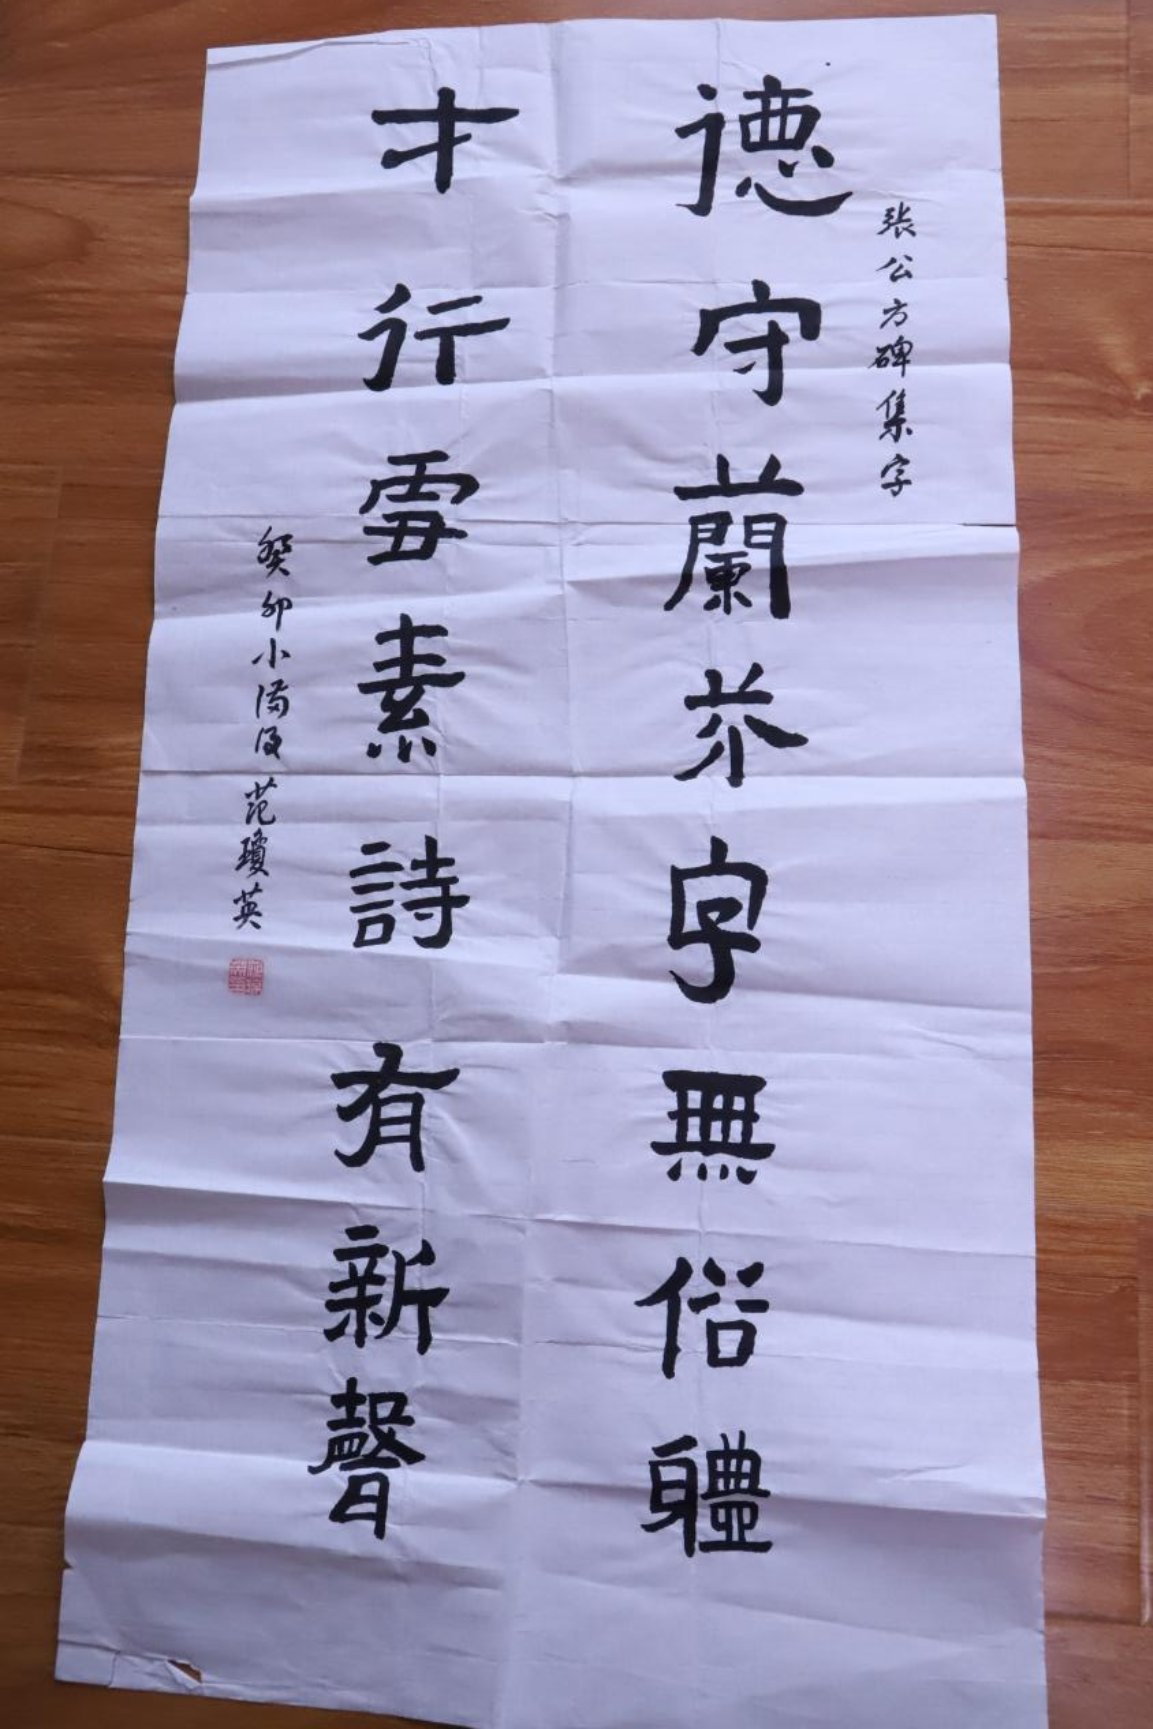 張公方碑集字
德守蘭芥字無俗軆
才行雪素詩有新聲
癸卯小满後范瓊英